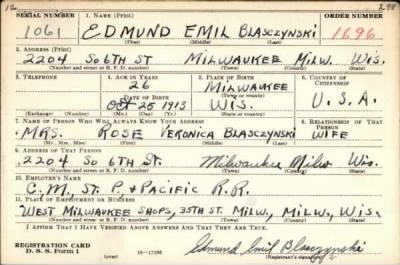 12 2 298
SERIAL NUMBER 1. NAME (Print) ORDER NUMBER
1061 EDMUND EMIL BLASCZYNSKI 1696
(First) (Middle) (Last)
2. ADDRESS (Print)
2204 So 6TH ST MILWAUKEE MILW. WIS.
(Number and street or R. F. D. number) (Town) (County) (State)
3. TELEPHONE 4. AGE IN YEARS 5. PLACE OF BIRTH 6. COUNTRY OF CITIZENSHIP
26 MILWAUKEE
DATE OF BIRTH (Town or county)
OCT 25 1913 WIS. U.S.A.
(Exchange) (Number) (Mo.) (Day) (Yr.) (State or country)
7. NAME OF PERSON WHO WILL ALWAYS KNOW YOUR ADDRESS 8. RELATIONSHIP OF THAT PERSON
MRS. ROSE VERONICA BLASCZYNSKI WIFE
(Mr., Mrs., Miss) (First) (Middle) (Last)
9. ADDRESS OF THAT PERSON
2204 So 6TH St. Milwaukee Milw Wis.
(Number and street or R. F. D. number) (Town) (County) (State)
10. EMPLOYER'S NAME
C.M., ST. P. & PACIFIC R.R.
11. PLACE OF EMPLOYMENT OR BUSINESS
WEST MILWAUKEE SHOPS, 35TH ST. MILW., MILW., WIS.
(Number and street or R. F. D. number) (Town) (County) (State)
I AFFIRM THAT I HAVE VERIFIED ABOVE ANSWERS AND THAT THEY ARE TRUE.
REGISTRATION CARD
D. S. S. Form 1 (over) 16—17105 Edmund Emil Blasczynski
(Registrant's signature)